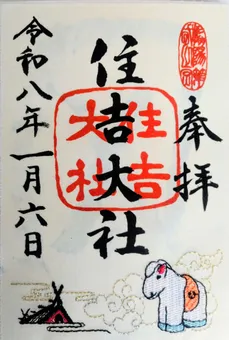 奉拝
住吉大社
住吉
大社
令和八年一月六日